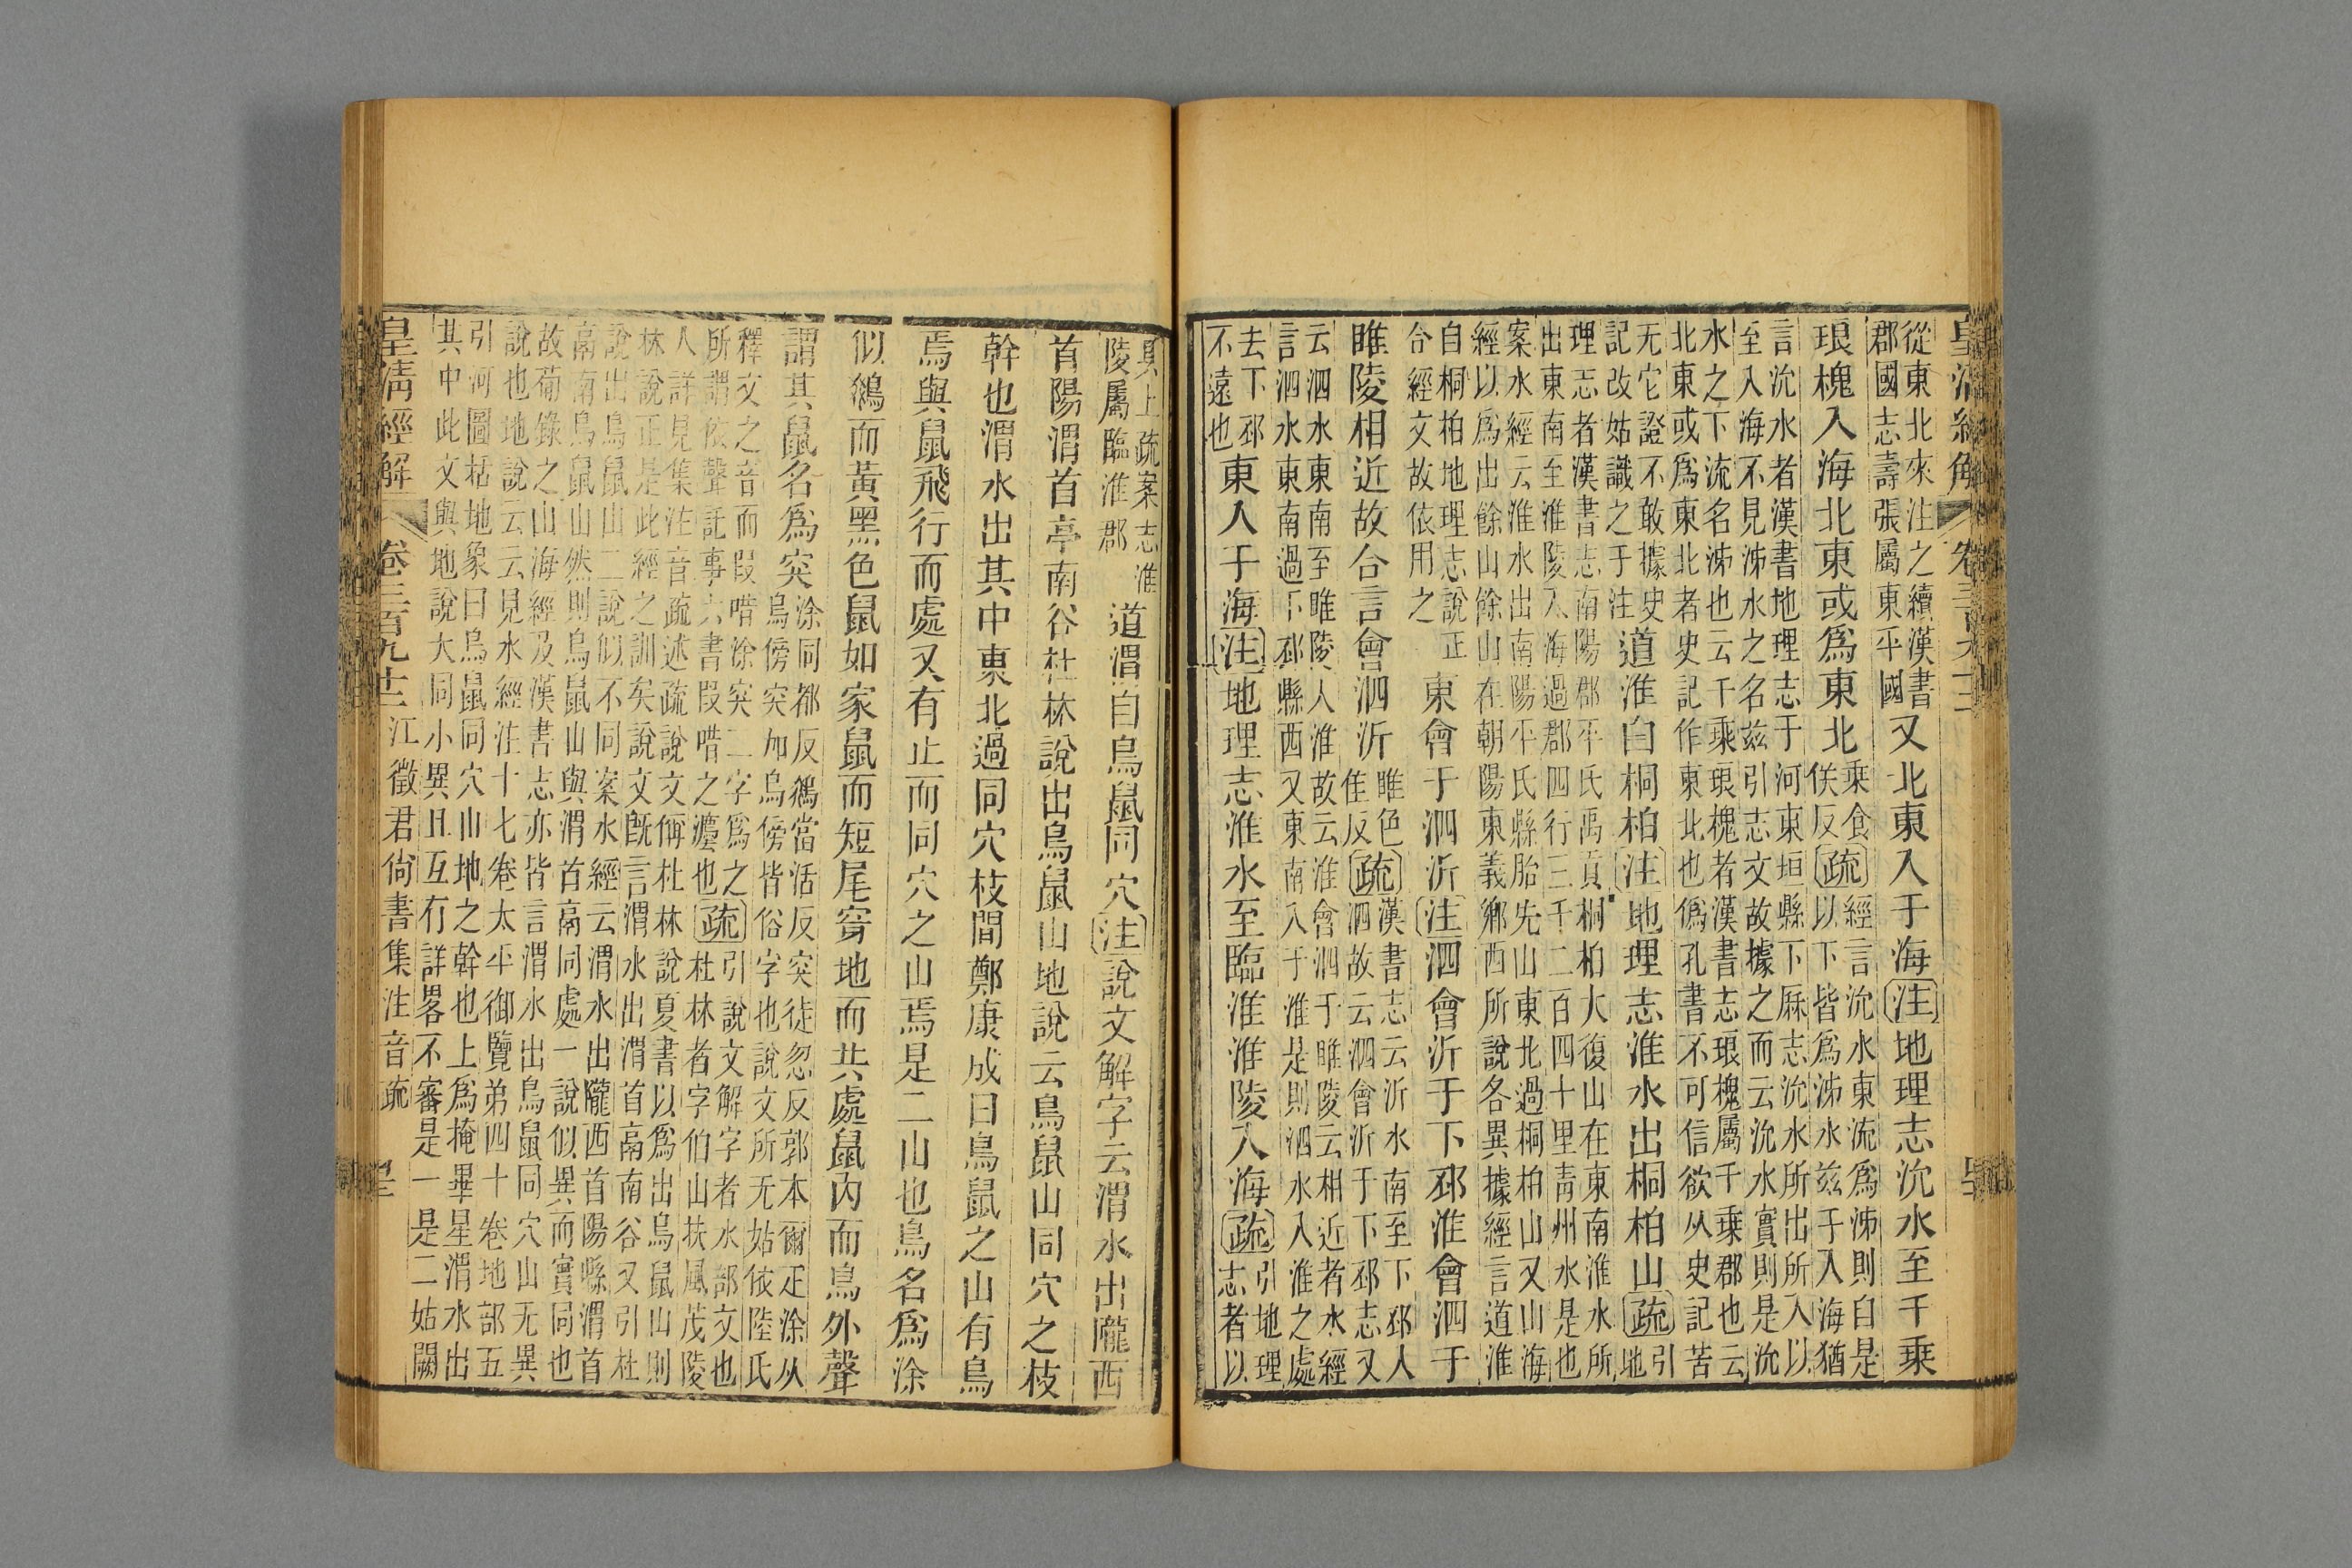 皇清經解
卷三百九十三
從東北來注之續漢書
郡國志壽張屬東平國
又北東入于海注地理志沇水至千乘
琅槐入海北東或爲東北
乘食
俟反
疏
經言沇水東流爲泲則自是
以下皆爲泲水兹于入海猶
言沇水者漢書地理志于河東垣縣下厤志沇水所出所入以
至入海不見泲水之名兹引志文故據之而云沇水實則是沇
水之下流名泲也云千乘琅槐者漢書志琅槐屬千乘郡也云
北東或爲東北者史記作東北也僞孔書不可信欲从史記苦
无它證不敢據史
記改姑識之于注
道淮自桐柏注地理志淮水出桐柏山疏
引
地
理志者漢書志南陽郡平氏禹貢桐柏大復山在東南淮水所
出東南至淮陵入海過郡四行三千二百四十里靑州水是也
案水經云淮水出南陽平氏縣胎先山東北過桐柏山又山海
經以爲出餘山餘山在朝陽東義鄉西所說各異據經言道淮
自桐柏地理志說正
合經文故依用之
東會于泗沂注泗會沂于下邳淮會泗于
睢陵相近故合言會泗沂
睢色
隹反
疏
漢書志云沂水南至下邳入
泗故云泗會沂于下邳志又
云泗水東南至睢陵入淮故云淮會泗于睢陵云相近者水經
言泗水東南過下邳縣西又東南入于淮是則泗水入淮之處
去下邳
不遠也
東入于海注地理志淮水至臨淮淮陵入海疏
引地理
志者以
具上疏案志淮
陵屬臨淮郡
道渭自鳥鼠同穴注說文解字云渭水出隴西
首陽渭首亭南谷杜林說出鳥鼠山地說云鳥鼠山同穴之枝
幹也渭水出其中東北過同穴枝間鄭康成曰鳥鼠之山有鳥
焉與鼠飛行而處又有止而同穴之山焉是二山也鳥名爲涂
似鵽而黃黑色鼠如家鼠而短尾穿地而共處鼠內而鳥外聲
謂其鼠名爲突
涂同都反鵽當活反突徒忽反郭本爾疋涂从
鳥傍突加鳥傍皆俗字也說文所无姑依陸氏
釋文之音而叚喈涂突二字爲之
所謂依聲託事六書叚喈之灋也
疏
引說文解字者水部文也
杜林者字伯山扶風茂陵
人詳見集注音疏述疏說文偁杜林說夏書以爲出鳥鼠山則
林說正是此經之訓矣說文旣言渭水出渭首鬲南谷又引杜
說出鳥鼠山二說似不同案水經云渭水出隴西首陽縣渭首
鬲南鳥鼠山然則鳥鼠山與渭首鬲同處一說似異而實同也
故葡錄之山海經及漢書志亦皆言渭水出鳥鼠同穴山无異
說也地說云云見水經注十七卷太平御覽弟四十卷地部五
引河圖栝地象曰鳥鼠同穴山地之幹也上爲掩畢星渭水出
其中此文與地說大同小異且互冇詳畧不審是一是二姑闕
皇淸經解
卷三百九十三
江徵君尙書集注音疏